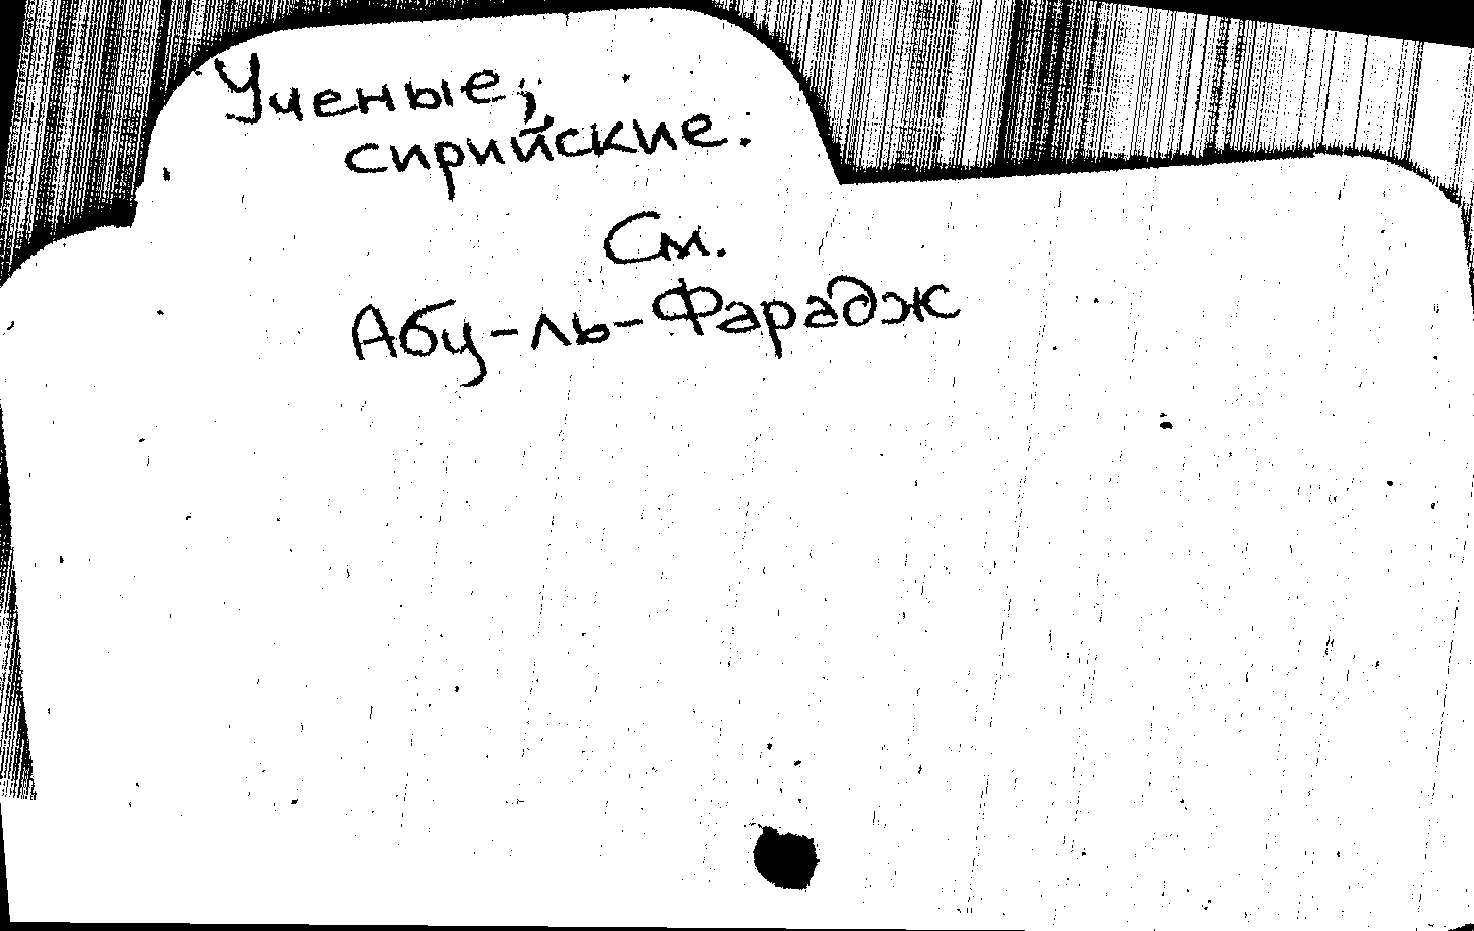 Ученые,
сирийские.
См.
Абу-ль-Фарадж